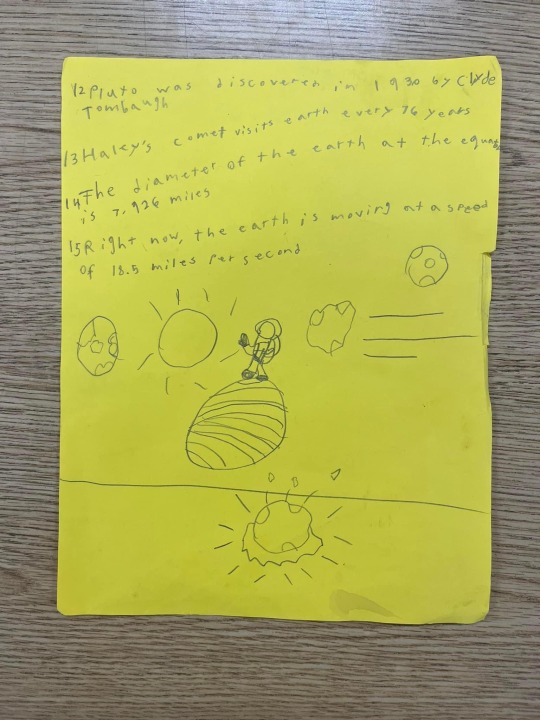 12 Pluto was discovered in 1930 by Clyde
Tombaugh
13 Haley's comet visits earth every 76 years
14 The diameter of the earth at the equator
is 7,926 miles
15 Right now, the earth is moving at a speed
of 18.5 miles per second